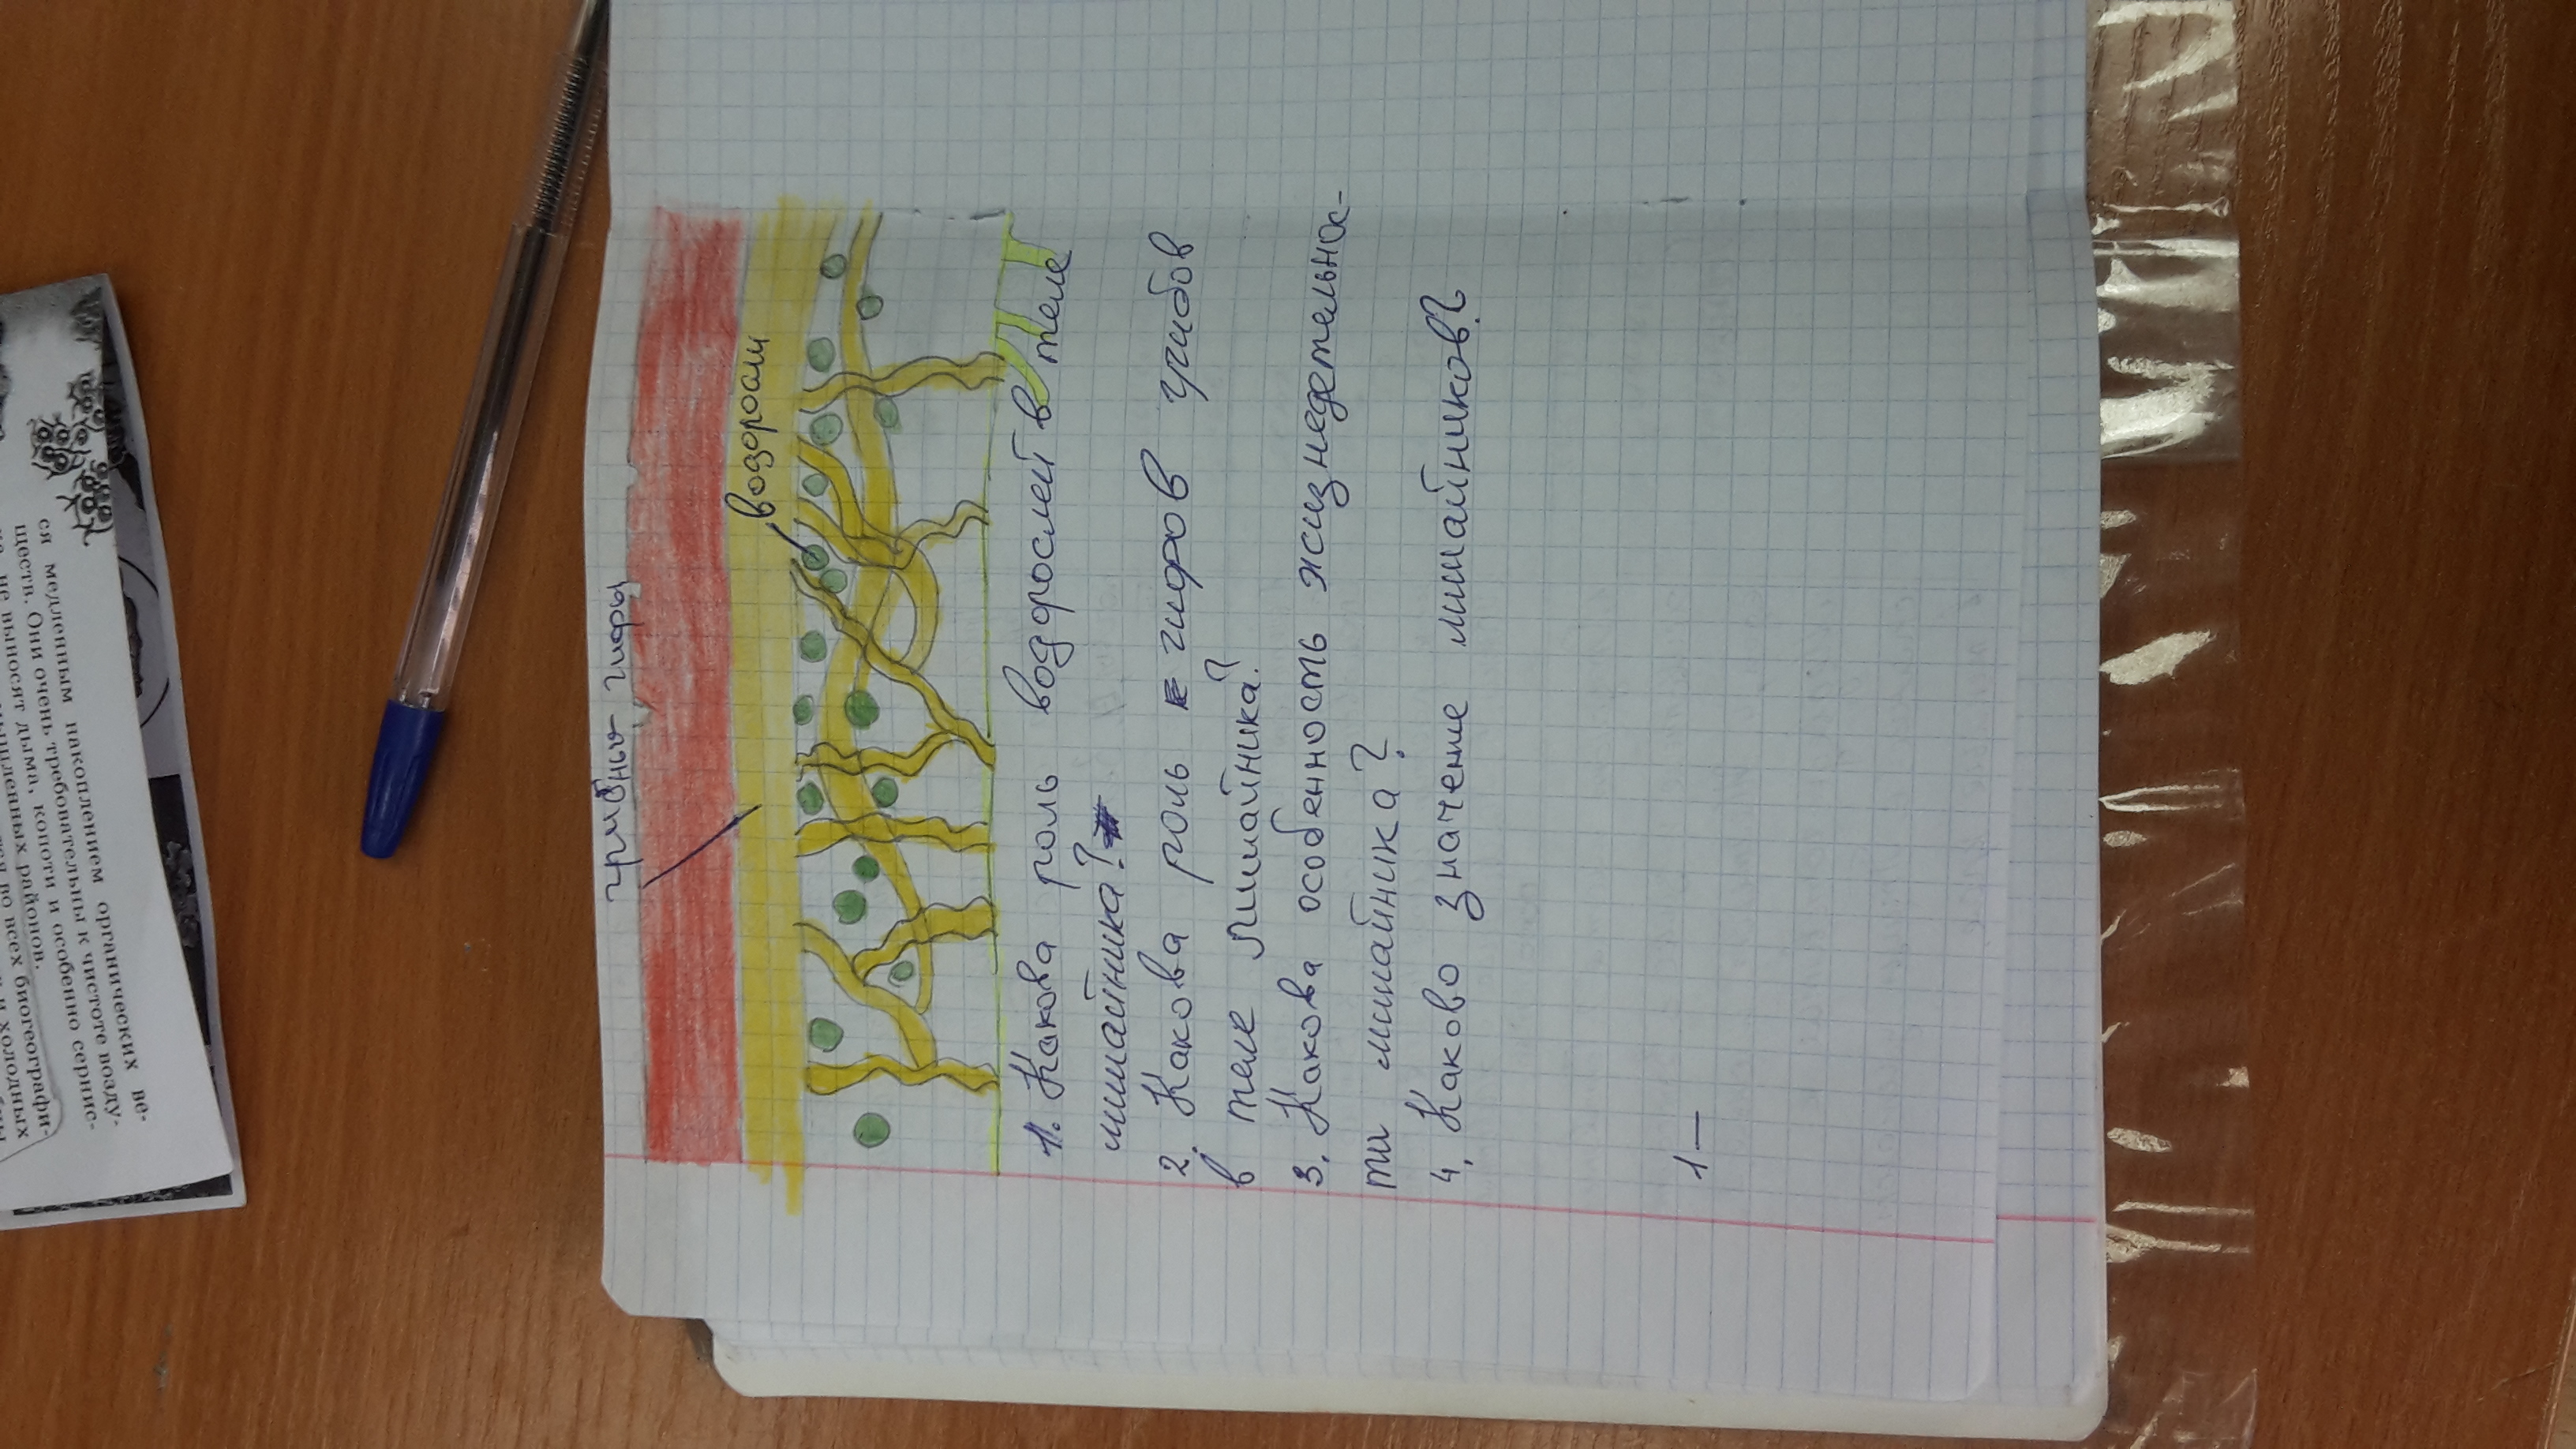 грибные гифы
водоросли
1. Какова роль водорослей в теле
лишайника?
2. Какова роль гифов грибов
в теле лишайника?
3. Какова особенность жизнедетельнос-
ти лишайника?
4. Каково значение лишайников?
1 —
ся медленным накоплением органических ве-
ществ. Они очень требовательны к чистоте возду-
не выносят дыма, копоти и особенно сернис-
районов.
во всех биогеографи-
и холодных